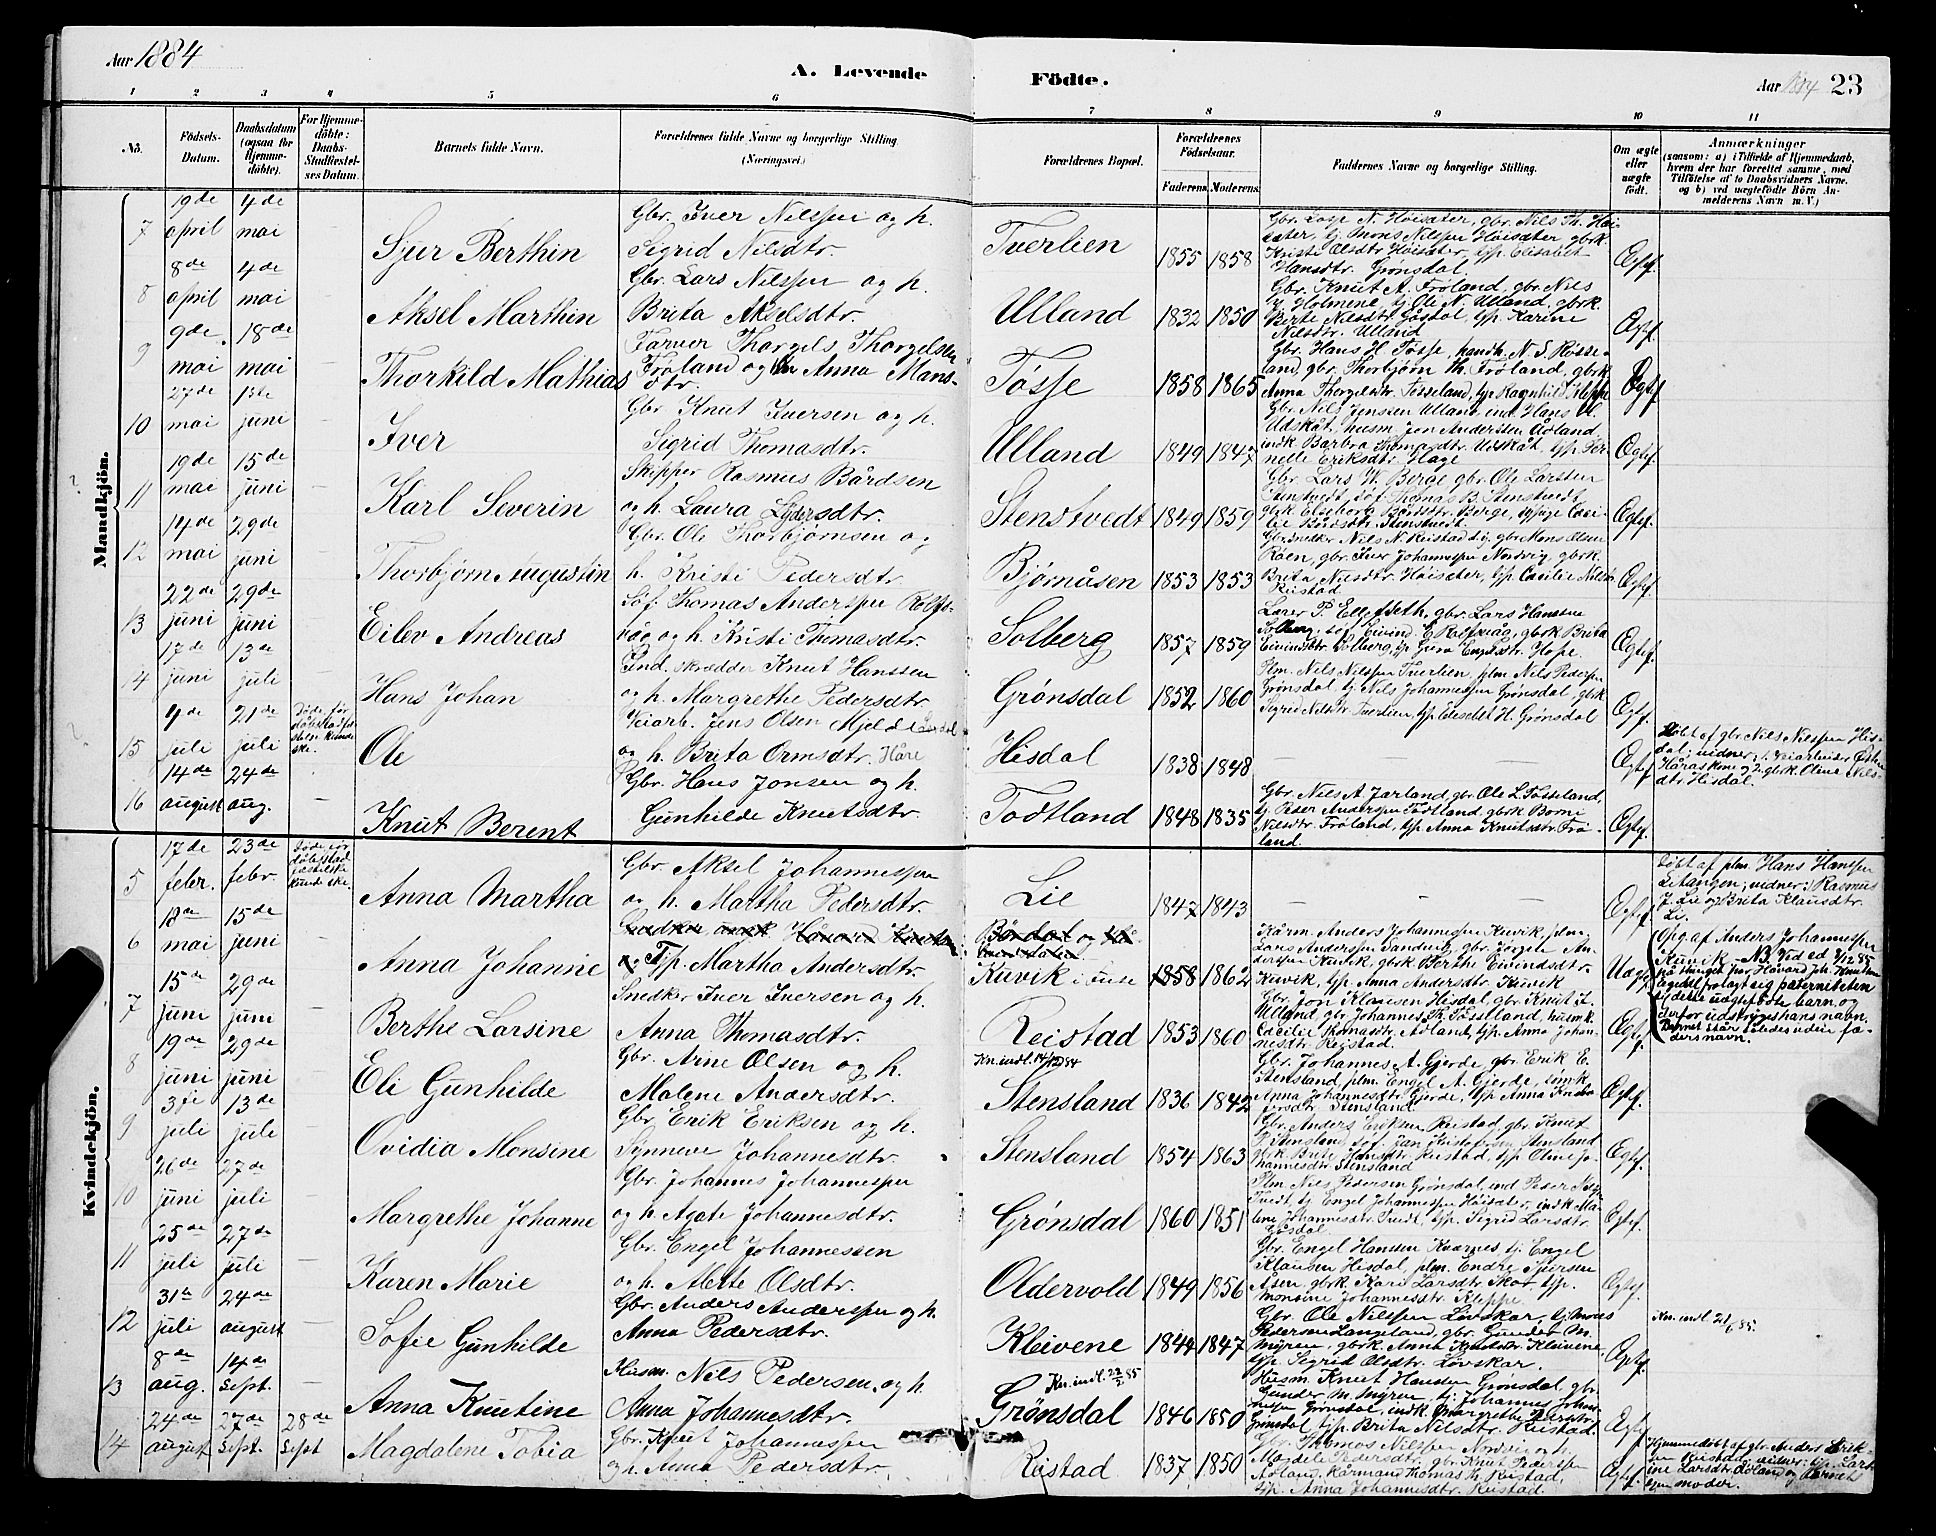 Aar 1884
A. Levende Födte.
Aar 1884 23
1 2 3 4 5 6 7 8 9 10 11
No.
Födsels-Datum.
Daabsdatum (ogsaa for Hjemmedöbte).
For Hjemmedöbte: Daabs-Stadfæstelses Datum.
Barnets fulde Navn.
Forældrenes fulde Navne og borgerlige Stilling (Næringsvei.)
Forældrenes Bopæl.
Forældrenes Födselsaar.
Faderens. Moderens.
Faddernes Navne og borgerlige Stilling.
Om ægte eller uægte födt.
Anmærkninger
(saasom: a) i Tilfælde af Hjemmedaab, hvem der har forrettet samme, med Tilföielse af to Daabsvidners Navne, og b) ved uægtefödte Börn Anmelderens Navn m. V.)
Mandkjön.
7 19de april 4de mai — Sjur Berthin
Gbr. Iver Nilssen og h.
Sigrid Nilsdtr.
Tverlien 1855 1858
Gbr. Lasse N. Høisæter, gbr. Nils Th. Høi-
sæter, tj. Mons Nilssen Høisæter, gbrk.
Kristi Olsdtr. Høisæter, t/p. Elisabet
Hansdtr. Grønsdal.
Ægtef.
8 8de april 4de mai — Aksel Marthin
Gbr. Lars Nilssen og h.
Brita Akselsdtr.
Ulland 1832 1850
Gbr. Knut A. Frøland, gbr. Nils
Holmene, tj. Ole N. Ulland, gbrk.
Berte Nilsdtr. Gåsdal, t/p. Karine
Nilsdtr. Ulland
Ægtef.
9 9de mai 18de mai — Thorkild Mathias
Farver Thorgels Thorgelsen
Frøland og h. Anna Mons-
dtr.
Tøsse 1858 1865
Gbr. Hans H. Tøsse, handh. N. S. Rosse-
land, gbr. Thorbjørn Th. Frøland, gbrk.
Anna Thorgelsdtr. Tosseland, t/p. Ragnhild Kleppe
Ægtef.
10 27de mai 1ste juni — Iver
Gbr. Knut Iversen og h.
Sigrid Thomasdtr.
Ulland 1849 1847
Gbr. Nils Jenssen Ulland, ind. Hans H.
Udskåt, husm. Jon Anderssen Ådland,
indk. Barbra Thomasdtr. Udskåt, t/p. Per-
nelle Eriksdtr. Hage
Ægtef.
11 19de mai 15de juni — Karl Severin
Skipper Rasmus Bårdsen
og h. Laura Lydersdtr.
Stenstvedt 1849 1859
Gbr. Lars H. Berge, gbr. Ole Larssen
Stenstvedt, söf. Thomas B. Stenstvedt,
gbrk. Elseborg Bårdsdtr. Berge, t/pige Cæci-
lie Bårdsdtr. Stenstvedt.
Ægtef.
12 14de mai 29de juni — Thorbjørn Augustin
Gbr. Ole Thorbjørnsen og
h. Kristi Pedersdtr.
Bjørnåsen 1853 1853
Gbr. snedker Nils N. Reistad, tj. gbr. Mons Olsen
Røen, gbr. Iver Johannessen Nordvig, gbrk.
Brita Nilsdtr. Høisæter, t/p. Cæcilie Nilsdtr.
Reistad.
Ægtef.
13 22de juni 29de juni — Eilev Andreas
Söf. Thomas Anderssen Rolfs-
våg og h. Kristi Thomasdtr.
Solberg 1857 1859
Lærer P. Elle/seth, gbr. Lars Hanssen
Solberg, söf. Eivind E. Rolfsvåg, gbrk. Brita
Eivindsdtr. Solberg, t/p. Gura Engelsdtr. Hope.
Ægtef.
14 17de juni 13de juli — Hans Johan
Ind. skrædder Knut Hanssen
og h. Margrethe Pedersdtr.
Grønsdal 1852 1860
Plm. Nils Nilssen Tverlien, plm. Nils Pedersen
Grønsdal, tj. Nils Johannessen Grønsdal, gbrk.
Sigrid Nilsdtr. Tverlien, t/p. Elisabet H. Grønsdal
Ægtef.
15 4de juli 21de juli
Døde, før
dåbstadfæ-
stelse kunde
ske. Ole
Veiarb. Jens Olsen Mjelde
og h. Brita Ormsdtr. Håre
Hisdal 1838 1848 — —
Ægtef.
Døbt af gbr. Nils Nilssen His-
dal; vidner: 1. veiarbeider
2. gbrk. Oline Nils-
dtr. Hisdal.
16 14de august 24de aug. — Knut Berent
Gbr. Hans Jonsen og h.
Gunhilde Knutsdtr.
Todtland 1848 1835
Gbr. Nils A. Jarland, gbr. Ole L. Tosseland,
tj. Peder Anderssen Todtland, gbrk. Borni
Nilsdtr. Frøland, t/p. Anna Knutsdtr. Frø-
land.
Ægtef.
Kvindekjön.
5 17de febr. 23de febr.
Døde, før
dåbstad-
fæstelse
kunde ske. Anna Martha
Gbr. Aksel Johannessen
og h. Martha Pedersdtr.
Lie 1847 1843 — —
Ægtef.
Døbt af plm. Hans Hanssen
Letangen; vidner: Rasmus
J. Lie og Brita Klausdtr.
Li.
6 18de mai 15de juni — Anna Johanne
T/p. Martha Andersdtr.
Kuvik 1858 1862
Kårm. Anders Johannessen Kuvik, plm.
Lars Anderssen Sandvig, gbr. Jørgen An-
derssen Kuvik, gbrk. Berthe Eivindsdtr.
Kuvik, t/p. Anna Andersdtr. Kuvik
Uægtef.
Opg. af Anders Johannessen
Kuvik — NB. Ved ed 2/12 85
på thinget har Håvard Joh. Knutsen
aflagt sig paterniteten
til dette uægtefødte barn, og
derfor udstryges hans navn.
Barnet står således uden fa-
ders navn.
7 15de juni 29de juni — Berthe Larsine
Snedker Iver Iversen og h.
Anna Thomasdtr.
Reistad 1853 1860
Gbr. Jon Klausen Hisdal, gbr. Knut I.
Ulland, gbr. Johannes K. Tosseland, husmk.
Cæcilie Monsdtr. Ådland, t/p. Anna Johan-
nesdtr. Reistad.
Ægtef.
8 19de juni 29de juni — Eli Gunhilde
Gbr. Arne Olsen og h.
Malene Andersdtr.
Kn. indl. 14/12 84
Stensland 1836 1842
Gbr. Johannes A. Gjerde, gbr. Erik E.
Stensland, plm. Engel A. Gjerde,
Anna Johannesdtr. Gjerde, t/p. Anna
Stensland
Ægtef.
9 3die juli 13de juli — Ovidia Monsine
Gbr. Erik Eriksen og h.
Synneve Johannesdtr.
Stensland 1854 1863
Gbr. Anders Eriksen Reistad, gbr. Knut
Stensland, söf. Jan Kristofersen Stensland
gbrk. Brite Hansdtr. Reistad, t/p. Oline Jo-
hannesdtr. Stensland
Ægtef.
10 26de juni 27de juli — Margrethe Johanne
Gbr. Johannes Johannessen
og h. Agate Johannesdtr.
Grønsdal 1860 1851
Plm. Nils Pedersen Grønsdal, ind. Peder
Tvedt, tj. Engel Johannessen Høisæter, indk. Ma-
lene Johannesdtr. Tvedt, t/p. Sigrid Larsdtr.
Gåsdal
Ægtef.
11 25de juli 27de juli — Karen Marie
Gbr. Engel Johannessen
og h. Mette Olsdtr.
Oldervold 1849 1856
Gbr. Engel Hansen Kvarnes, tj. Engel
Klausen Hisdal, plm. Endre Iversen
Åsen, gbrk. Kari Larsdtr. Skår, t/p.
Monsine Johannesdtr. Kleppe.
Ægtef.
12 31te juli 24de august — Sofie Gunhilde
Gbr. Anders Anderssen og h.
Anna Pedersdtr.
Kleivene 1844 1847
Gbr. Ole Nilssen Løvskar, tj. Mons
Pedersen Langeland, gbr. Gunder M.
Myren, gbrk. Anna Knutsdtr. Kleivene,
t/p. Sigrid Olsdtr. Løvskar.
Ægtef.
Kn. indl. 21/6 85.
13 8de aug. 14de Sept. — Anna Knutine
Husm. Nils Pedersen og h.
Anna Johannesdtr.
Kn. indl. 22/2 85
Grønsdal 1846 1850
Husm. Knut Hansen Grønsdal, gbr.
Gunder M. Myren, tj. Johannes Johan-
nessen Grønsdal, indk. Margrethe Pedersdtr.
Grønsdal, t/p. Brita Nilsdtr. Reistad.
Ægtef.
14 24de august 27de Sept. 28de Sept Magdalene Tobia
Gbr. Knut Johannessen
og h. Anna Pedersdtr.
Reistad 1837 1850
Gbr. Thomas Nilssen Nordvig
Magdele Pedersdtr. gbr. Knut Pederssen
Ådland, kårmand Thomas K. Reistad,
t/p. Anna Johannesdtr. Reistad.
Ægtef.
Hjemmedøbt af gbr. Anders Erik-
sen Reistad; vidner: t/p. Lars-
ine Larsdtr. Ådland og barnets
egen moder.